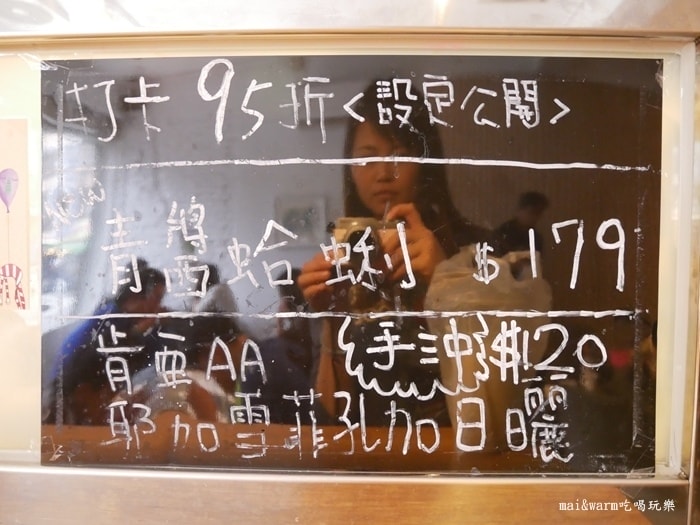 打卡 95折<設定公開>
NEW
青醬蛤蜊 $179
肯亞AA 手沖 $120
耶加雪菲孔加日曬
mai&warm吃喝玩樂